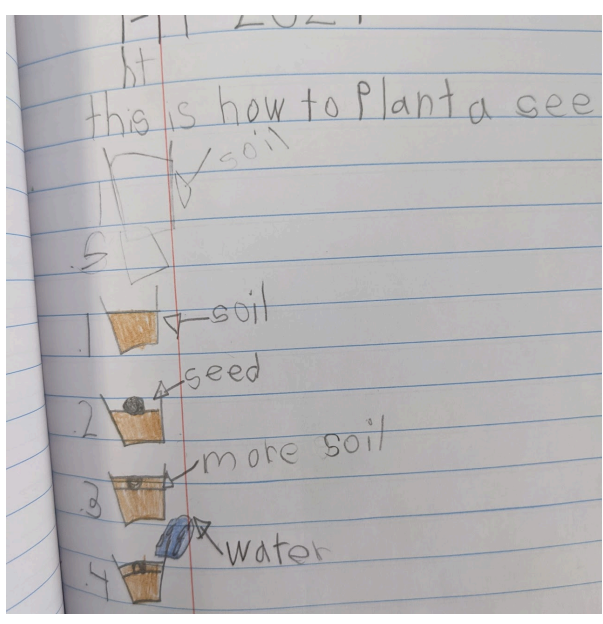 ht
this is how to Plant a see
soil
.5
.1 soil
seed
.2
more soil
.3
water
.4